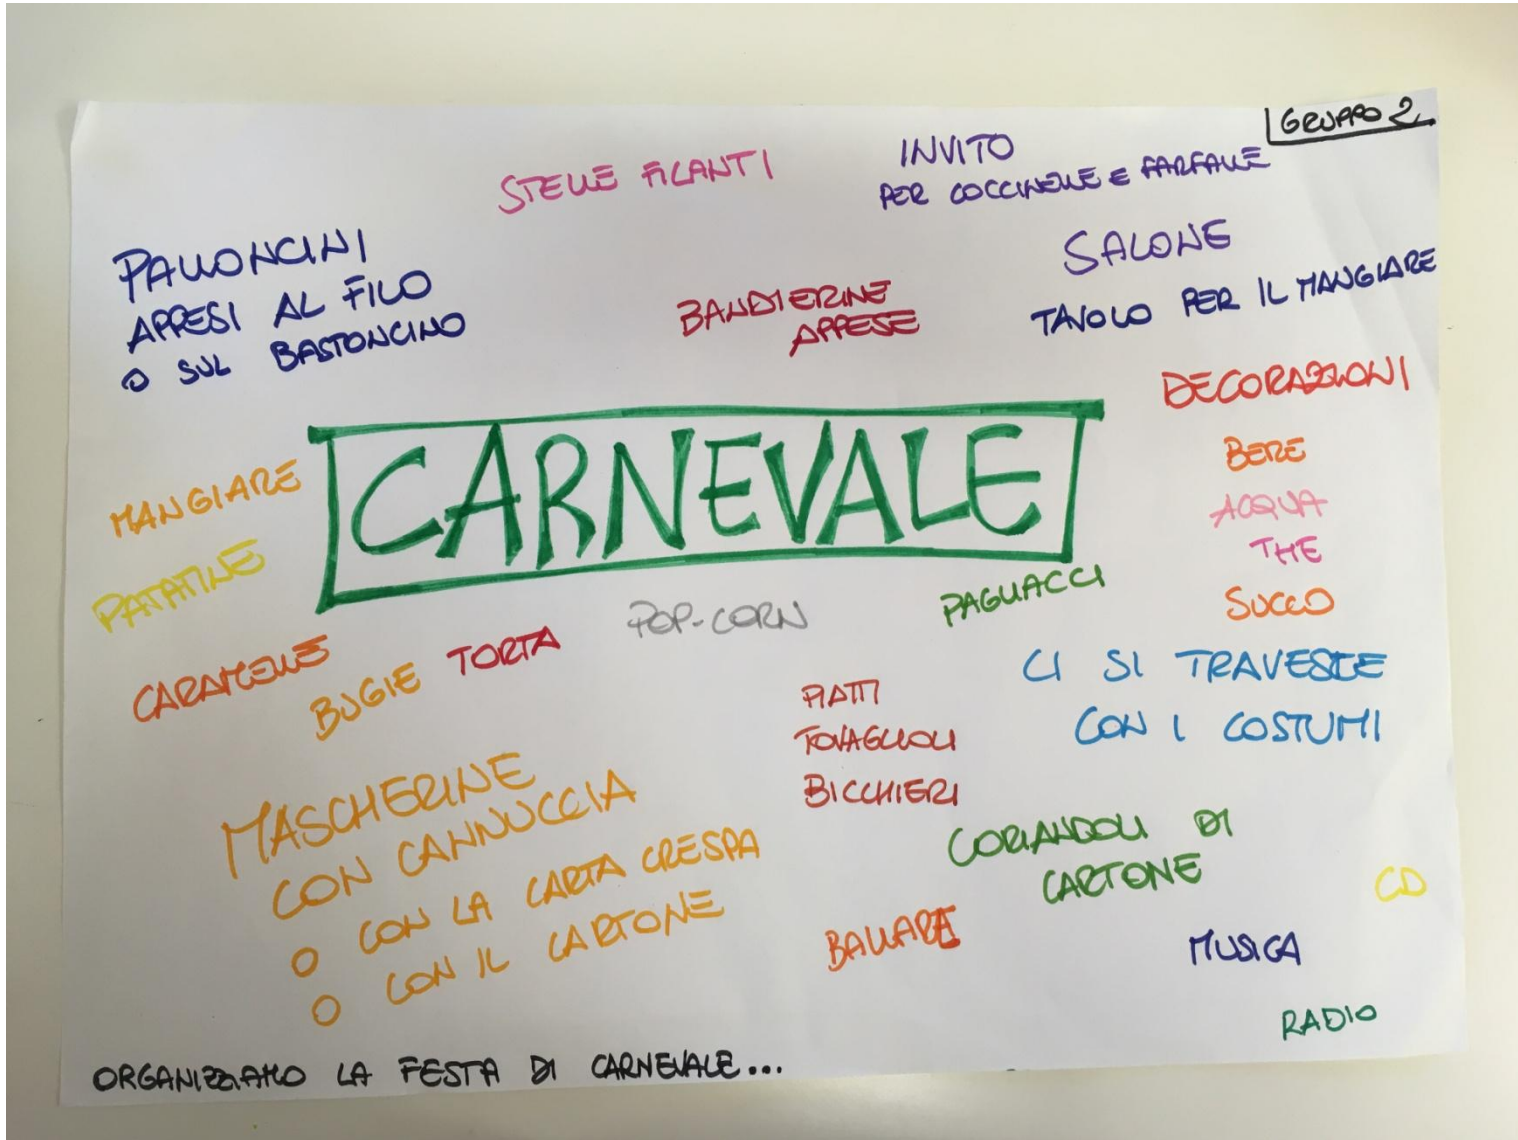 GRUPPO 2
STELLE FILANTI
INVITO
PER COCCINELLE E FARFALLE
PALLONCINI
APPESI AL FILO
O SUL BASTONCINO
BANDIERINE
APPESE
SALONE
TAVOLO PER IL MANGIARE
DECORAZIONI
CARNEVALE
MANGIARE
PATATINE
CARAMELLE
BUGIE
TORTA
POP-CORN
PAGLIACCI
BERE
ACQUA
THE
SUCCO
CI SI TRAVESTE
CON I COSTUMI
PIATTI
TOVAGLIOLI
BICCHIERI
MASCHERINE
CON CANNUCCIA
O CON LA CARTA CRESPA
O CON IL CARTONE
CORIANDOLI DI
CARTONE
BALLARE
MUSICA
CD
RADIO
ORGANIZZIAMO LA FESTA DI CARNEVALE...